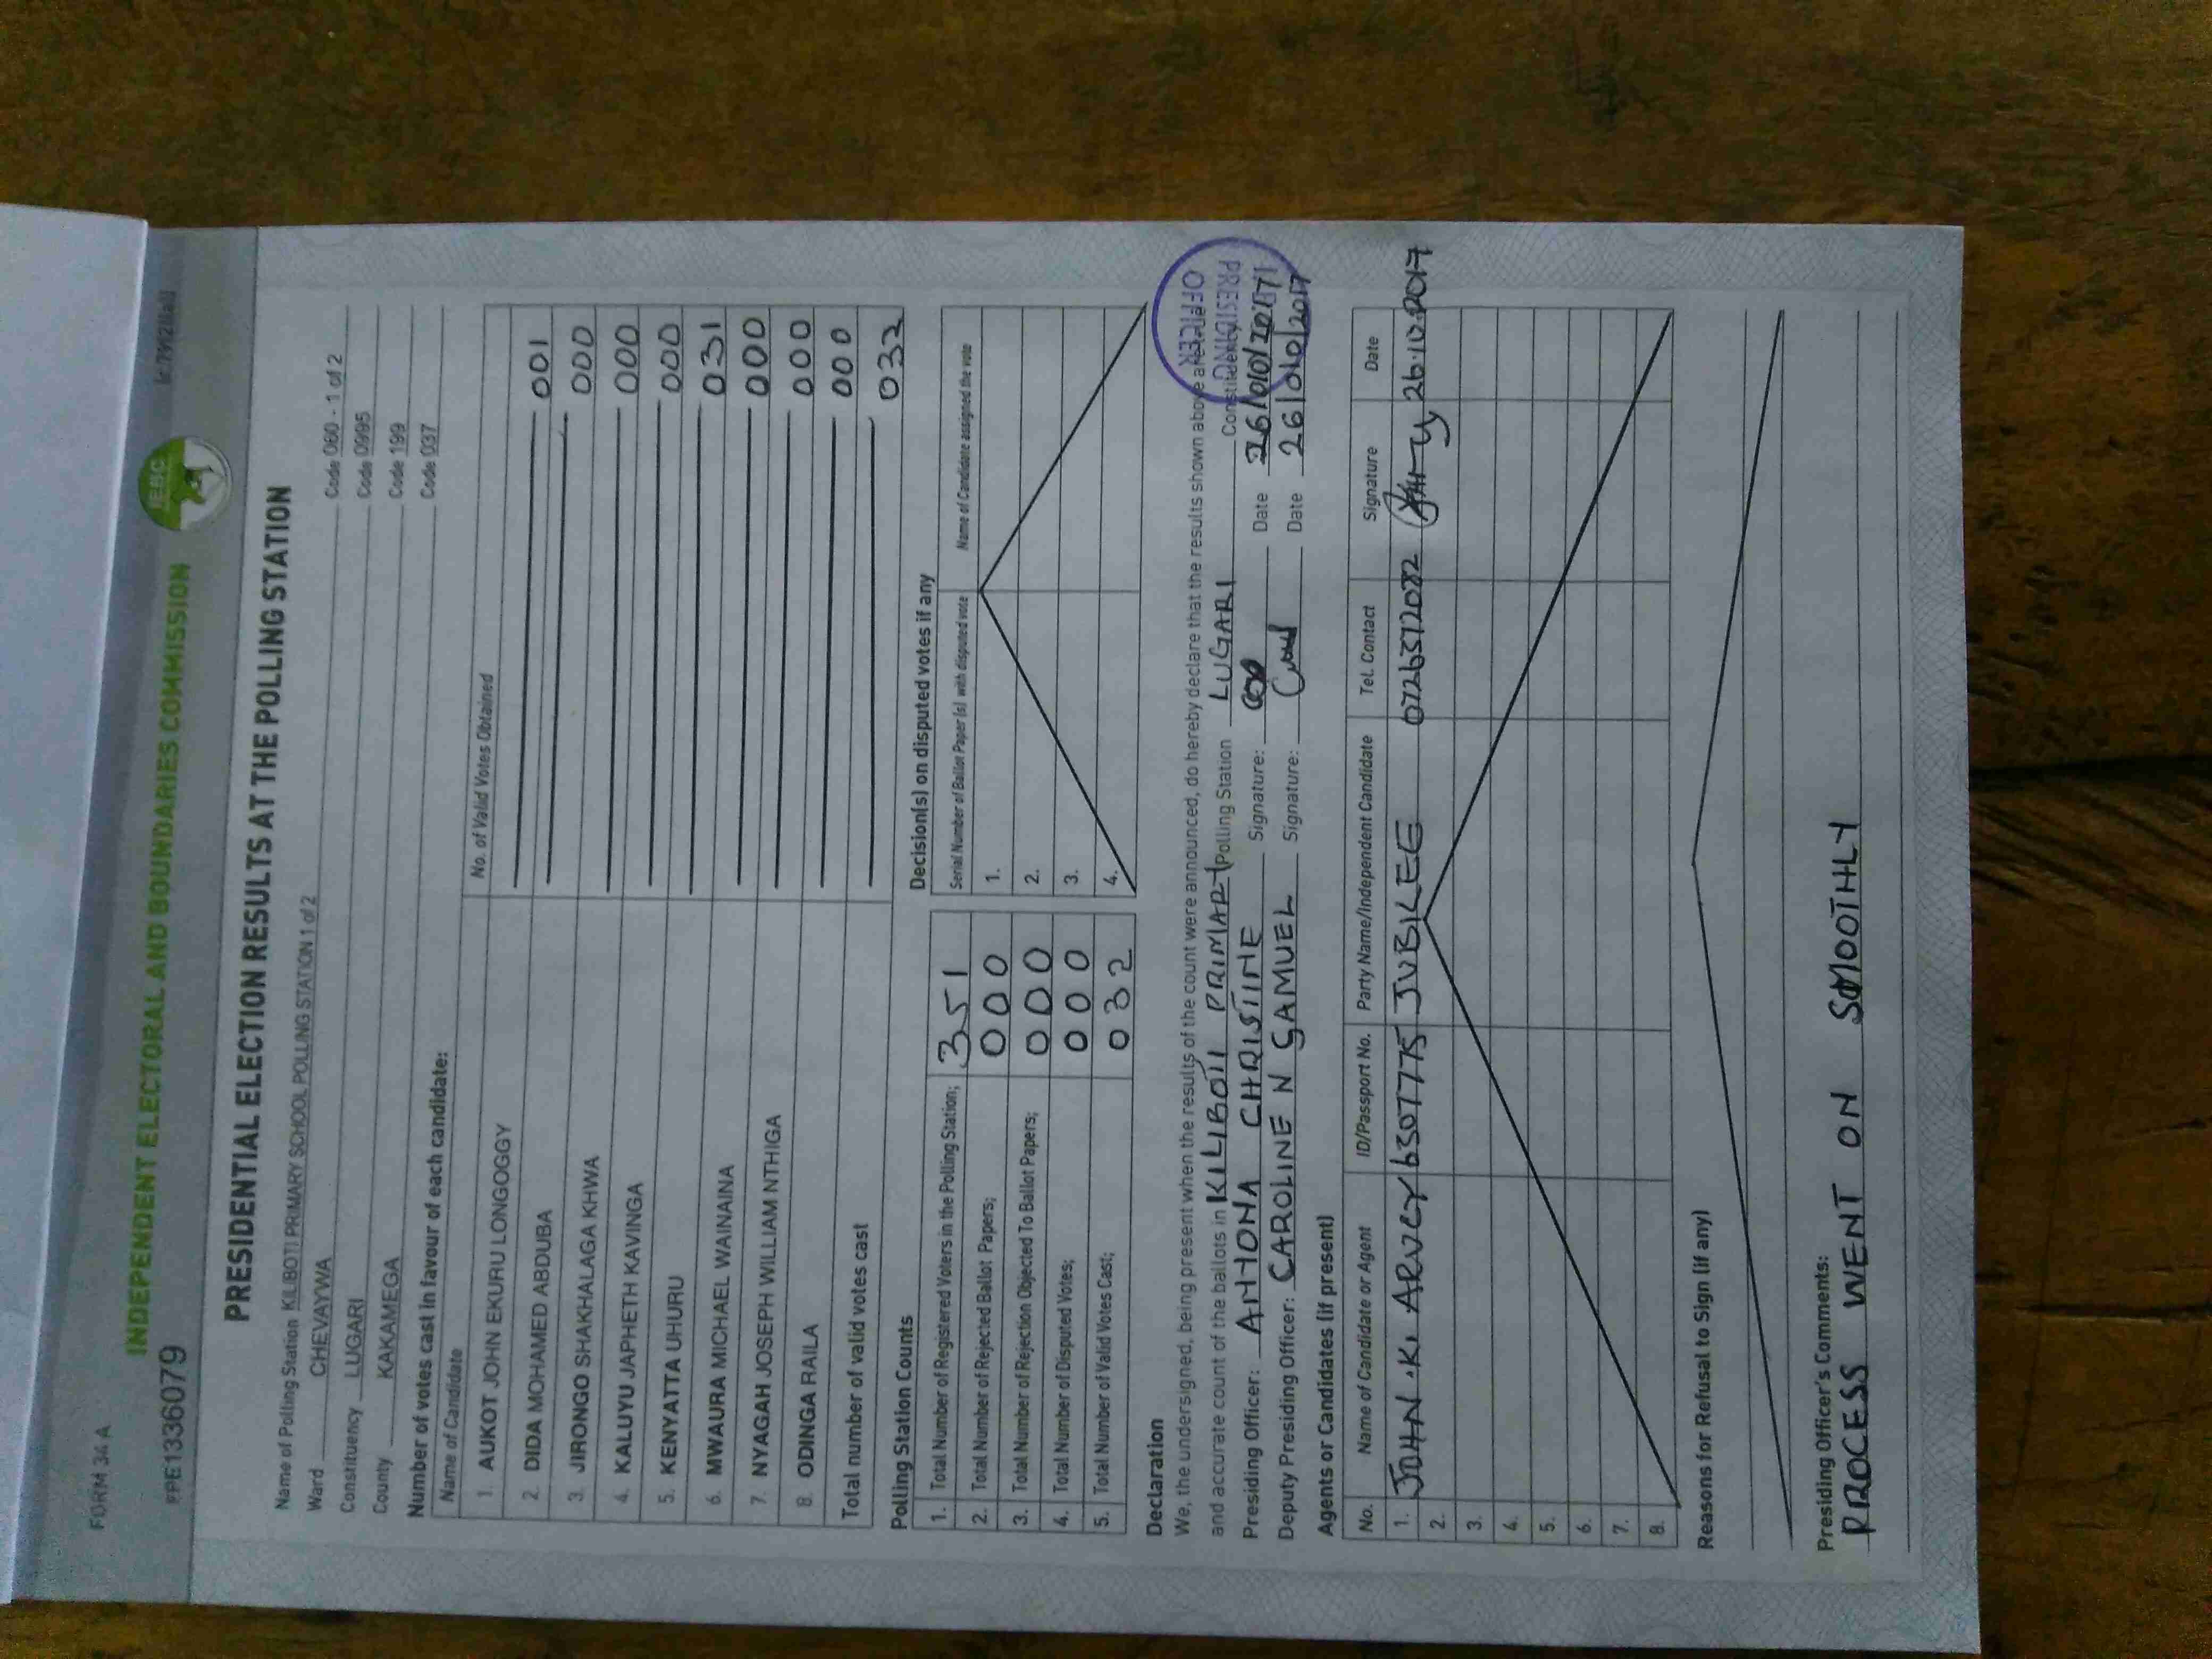 FORM 34 A
INDEPENDENT ELECTORAL AND BOUNDARIES COMMISSION
IEBC
PPE1336079
PRESIDENTIAL ELECTION RESULTS AT THE POLLING STATION
Name of Polling Station KILIBOTI PRIMARY SCHOOL POLLING STATION 1 of 2 Code 060 - 1 of 2
Ward CHEVAYWA Code 0995
Constituency LUGARI Code 199
County KAKAMEGA Code 037
Number of votes cast in favour of each candidate:
Name of Candidate No. of Valid Votes Obtained
1. AUKOT JOHN EKURU LONGOGGY 001
2. DIDA MOHAMED ABDUBA 000
3. JIRONGO SHAKHALAGA KHWA 000
4. KALUYU JAPHETH KAVINGA 000
5. KENYATTA UHURU 031
6. MWAURA MICHAEL WAINAINA 000
7. NYAGAH JOSEPH WILLIAM NTHIGA 000
8. ODINGA RAILA 000
Total number of valid votes cast 032
Polling Station Counts
1. Total Number of Registered Voters in the Polling Station; 351
2. Total Number of Rejected Ballot Papers; 000
3. Total Number of Rejection Objected To Ballot Papers; 000
4. Total Number of Disputed Votes; 000
5. Total Number of Valid Votes Cast; 032
Decision(s) on disputed votes if any
Serial Number of Ballot Paper (s) with disputed vote Name of Candidate assigned the vote
1.
2.
3.
4.
Declaration
We, the undersigned, being present when the results of the count were announced, do hereby declare that the results shown above are true
and accurate count of the ballots in KILIBOTI PRIMARY Polling Station LUGARI Constituency
Presiding Officer: AMONA CHRISTINE Signature: Date 26/010/2017
Deputy Presiding Officer: CAROLINE N SAMUEL Signature: Date 26/010/2017
PRESIDING
OFFICER
Agents or Candidates (if present)
No. Name of Candidate or Agent ID/Passport No. Party Name/Independent Candidate Tel. Contact Signature Date
1. JOHN .K. 6307775 JUBILEE 0726512082 26.10.2017
2.
3.
4.
5.
6.
7.
8.
Reasons for Refusal to Sign (if any)
Presiding Officer's Comments:
PROCESS WENT ON SMOOTHLY